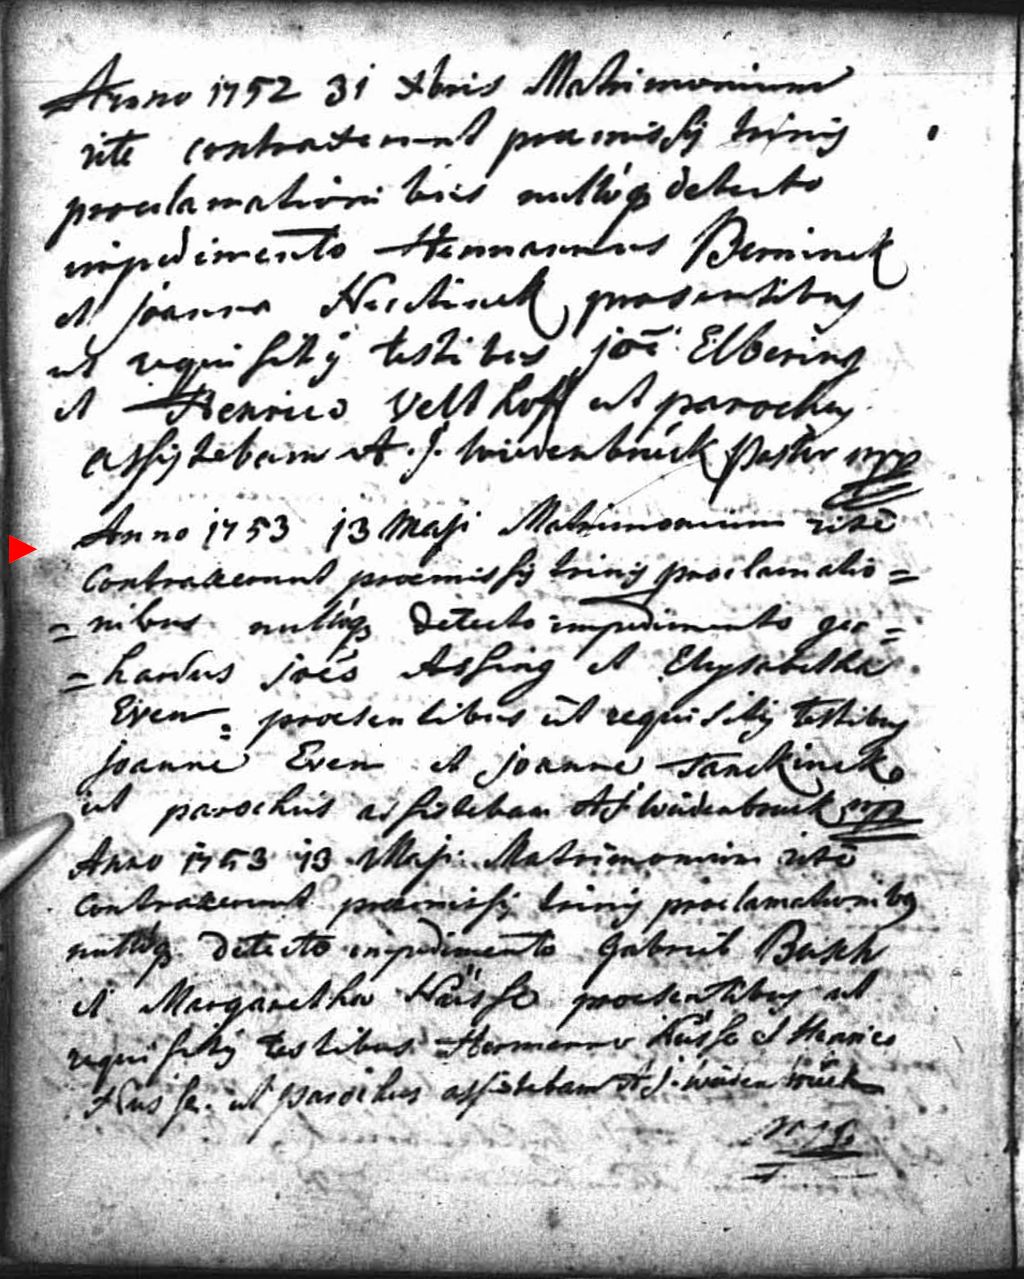 Anno 1752 31 Xbris Matrimonium
rite contraxerunt praemissis trinis
proclamationibus nullóq detecto
impedimento Hermannus Benninck
et joanna praesentibus
ut requisitis testibus joē Elbering
et Henrico Velthoff ut parochus
assistebam A. J. Wiedenbrück pastor mpp
Anno 1753 13 Maji Matrimonium ritè
Contraxerunt praemissis trinis proclamatio=
=nibus nullóq detecto impedimento ger=
=hardus joēs Assing et Elysabetha
Even praesentibus ut requisitis testibus
joanne Even et joanne Tanckinck
ut parochus assistebam AJ Wiedenbruck mpp
Anno 1753 13 Maji Matrimonium ritè
contraxerunt praemissis trinis proclamationibus
nullóq detecto impedimento Gabriel Busch
et Margaretha praesentibus ut
requisitis testibus Hermanno et Henrico
ut parochus assistebam A J. Wiedenbrück
mpp